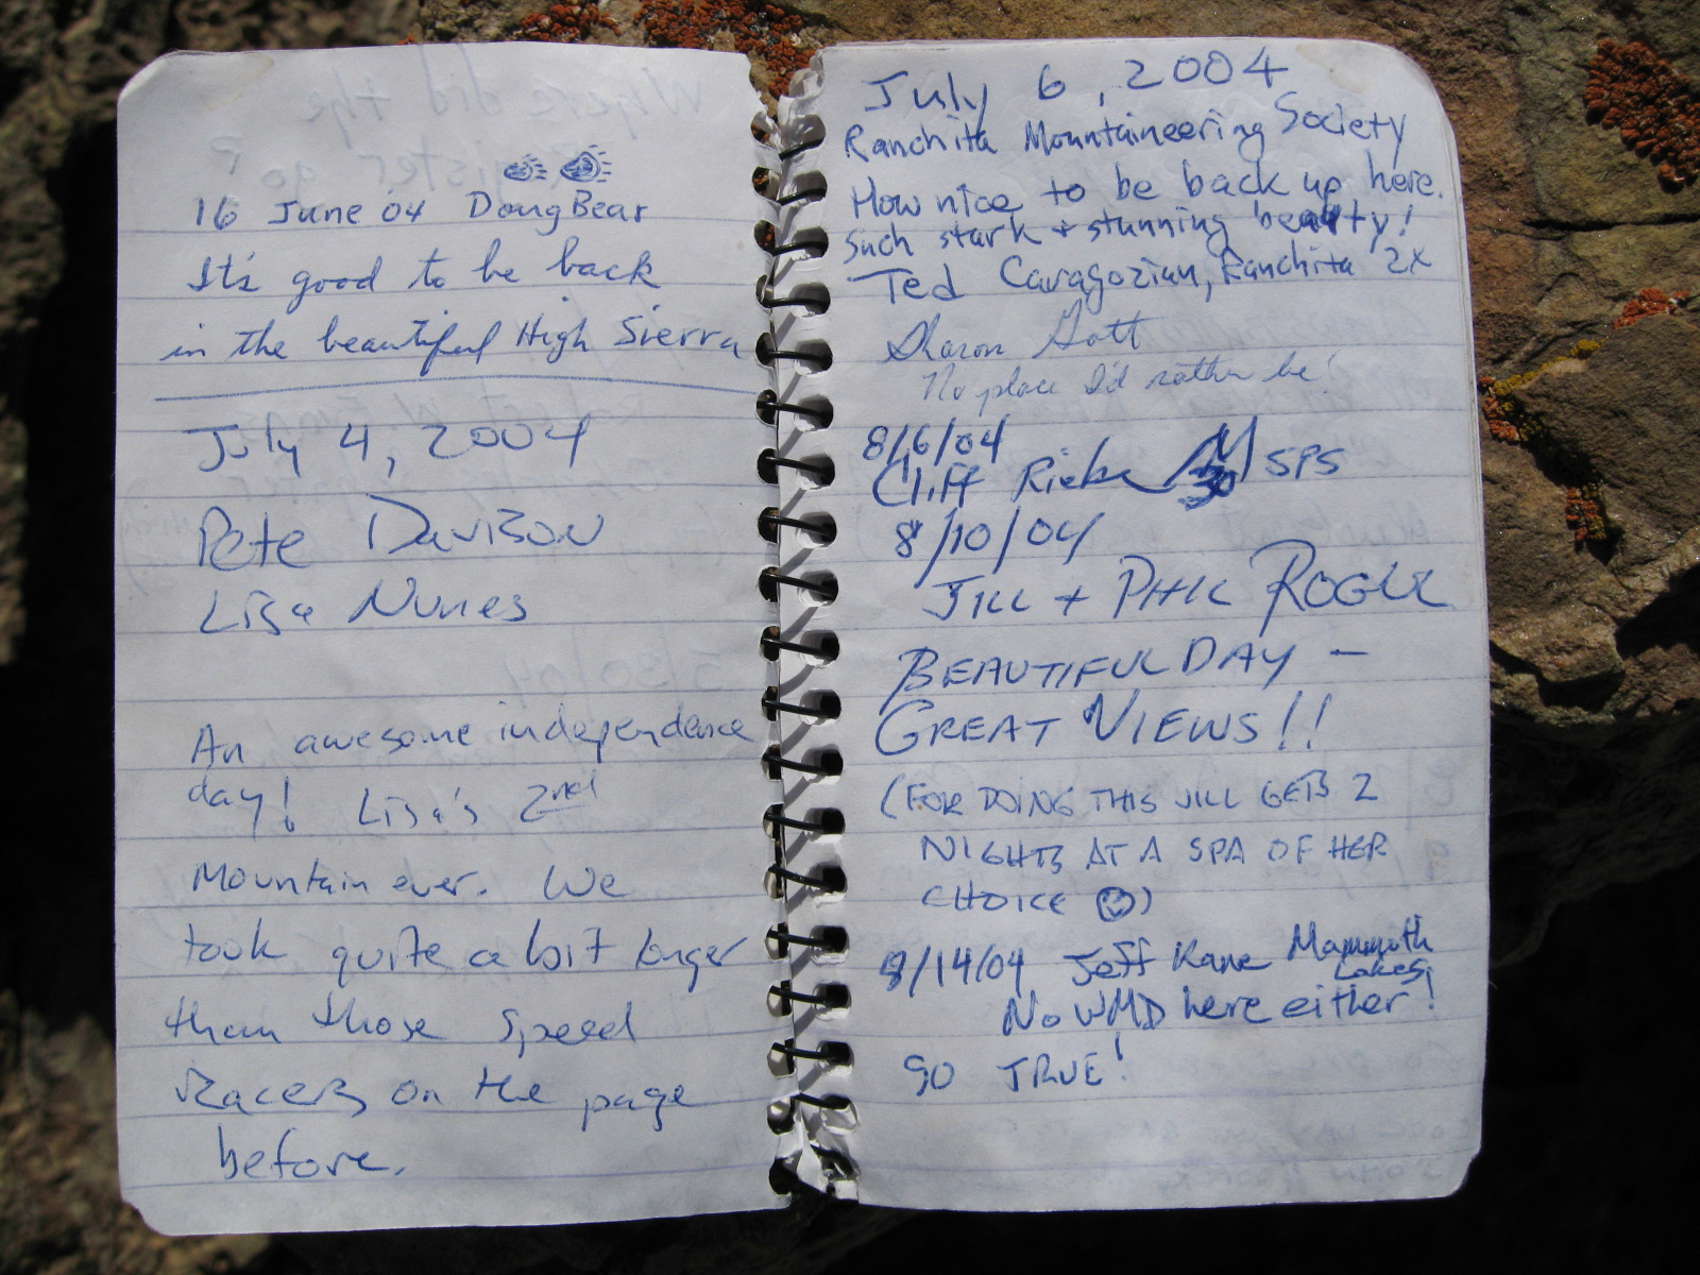 16 June '04 Doug Bear
It's good to be back
in the beautiful High Sierra
July 4, 2004
Pete Davison
Lisa Nunes
An awesome independence
day! Lisa's 2nd
Mountain ever. We
took quite a bit longer
than those speed
racers on the page
before.
July 6, 2004
Ranchita Mountaineering Society
How nice to be back up here.
Such stark & stunning beauty!
Ted Caragozian, Ranchita 2x
Sharon Gott
No place I'd rather be!
8/6/04
Cliff SPS
8/10/04
JILL + PHIL
BEAUTIFUL DAY –
GREAT VIEWS!!
(FOR DOING THIS JILL GETS 2
NIGHTS AT A SPA OF HER
CHOICE ☺)
8/14/04 Jeff Kane Mammoth
Lakes,
No WMD here either!
SO TRUE!